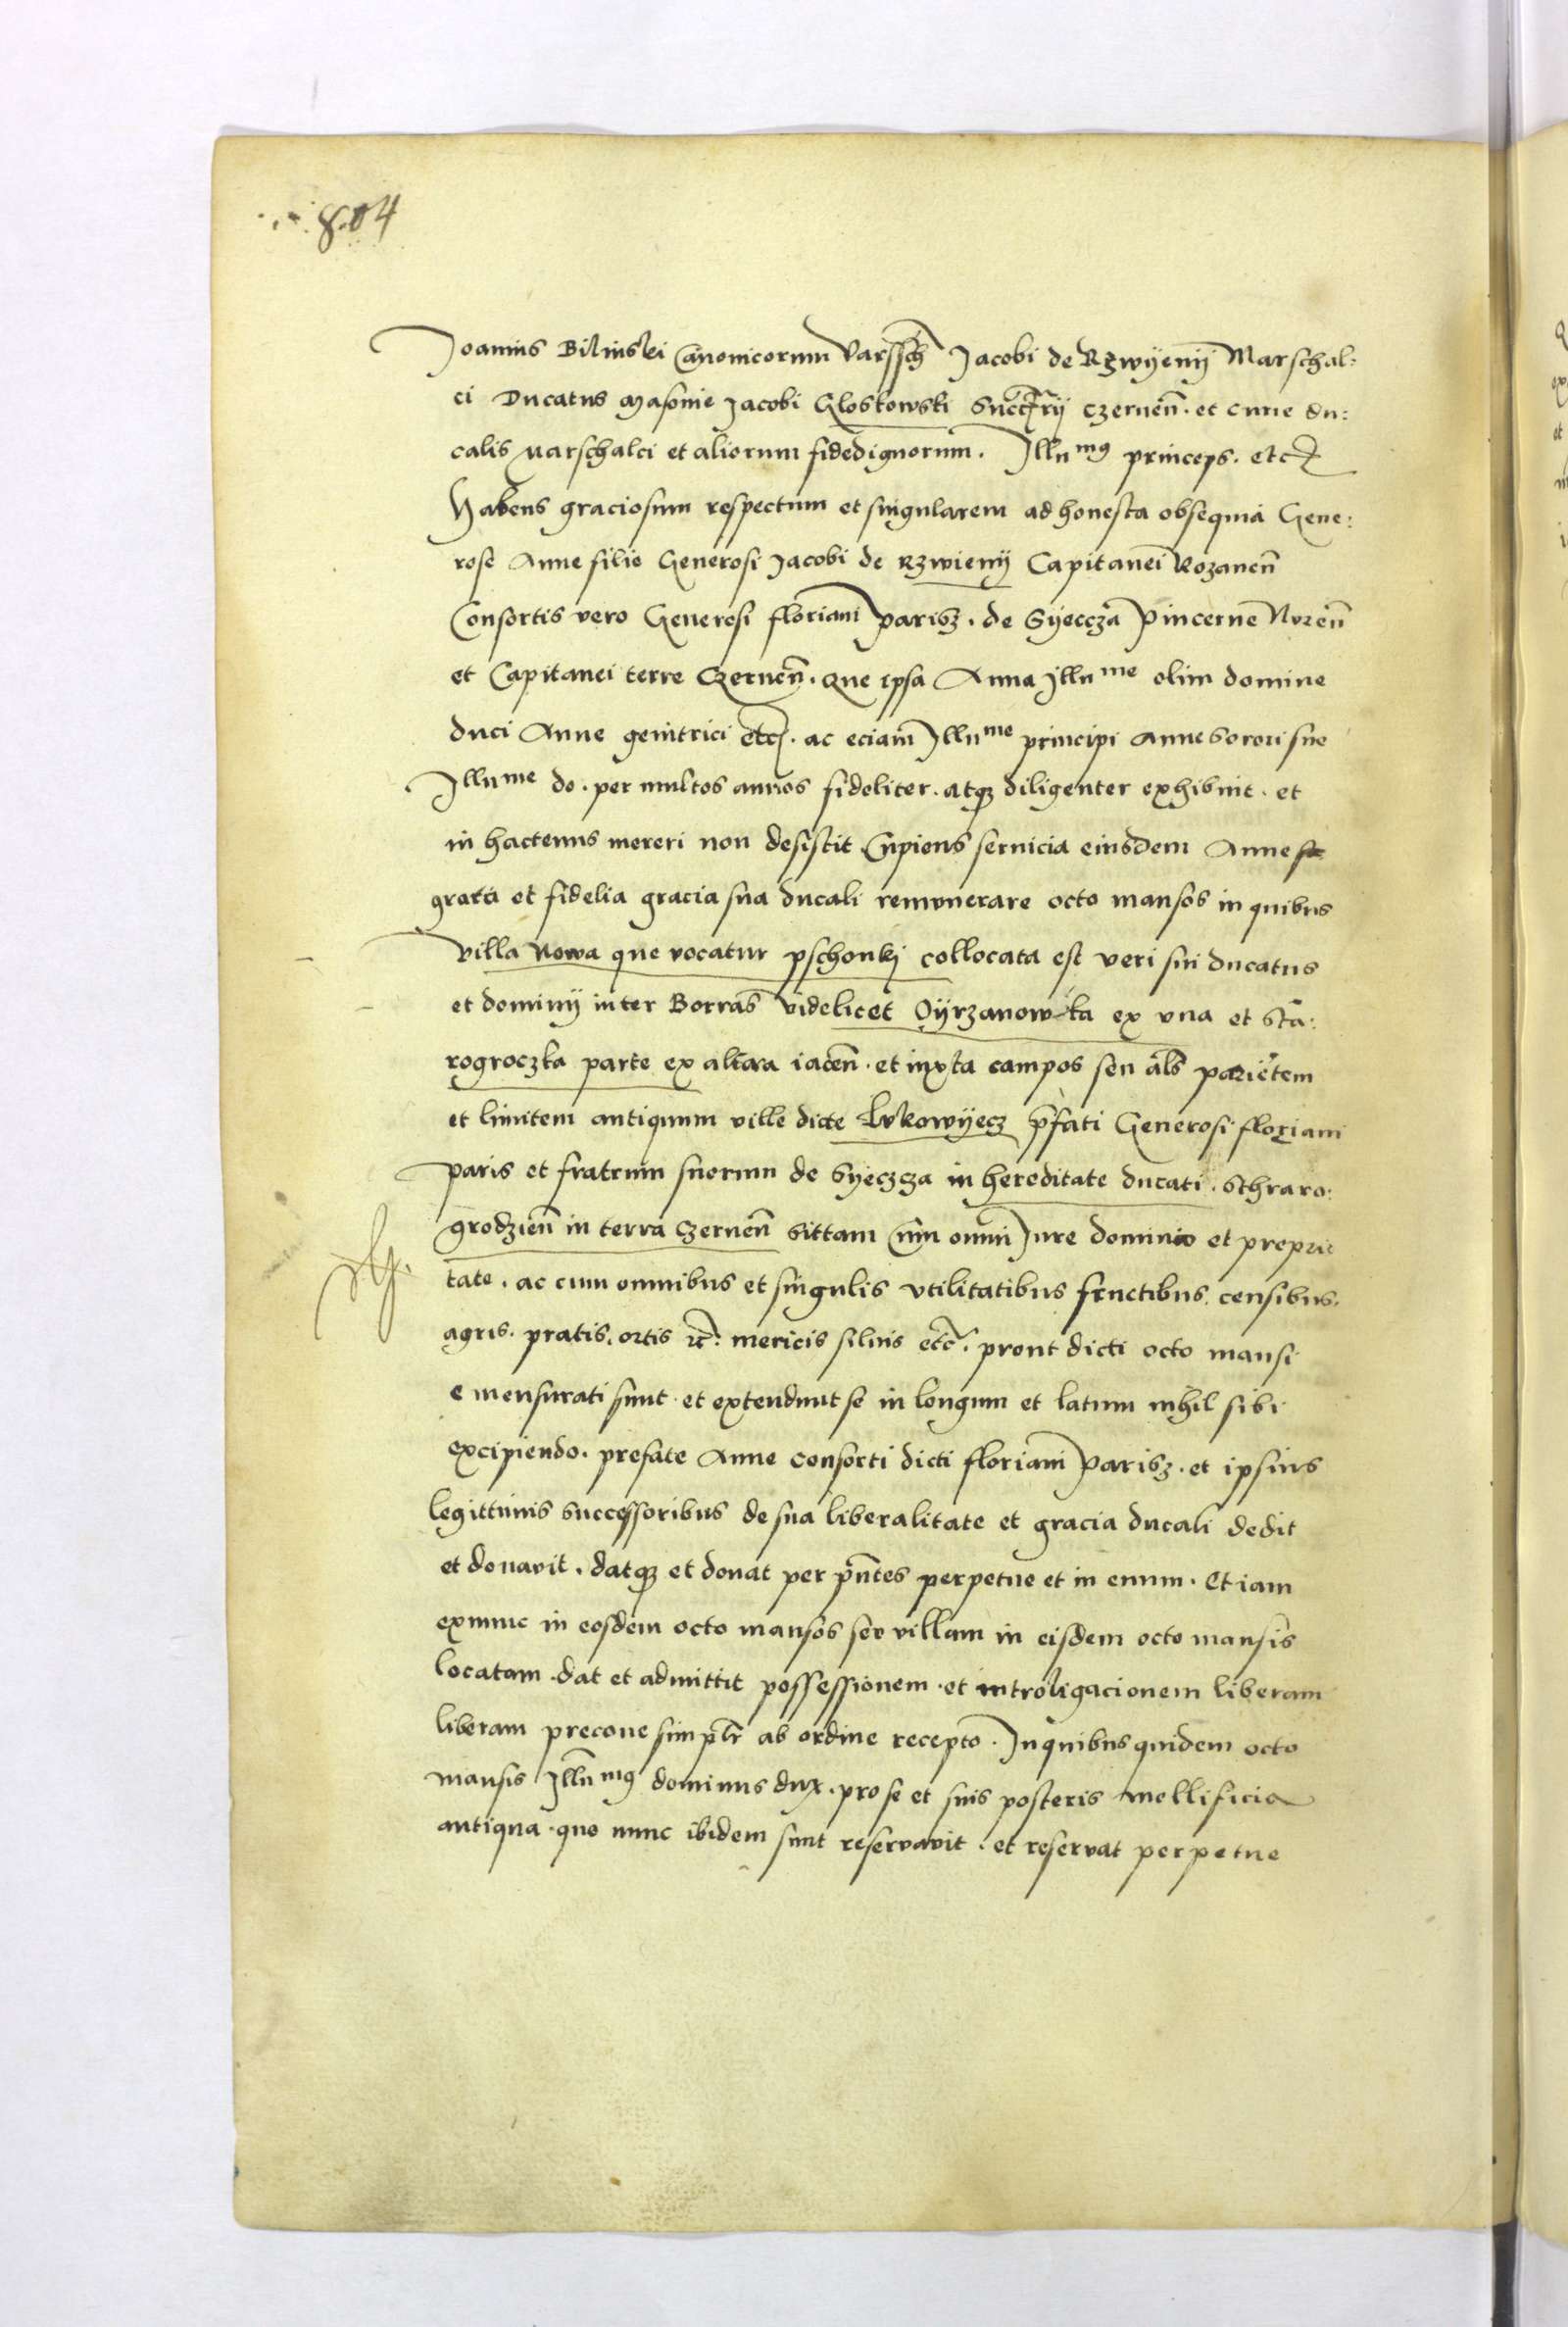 804
Joannis Bilinski Canonicorum Varssch Jacobi de Rzwyenij Marschal:
ci Ducatus Masovie Jacobi Gloskowski Succ Czernen. et curie du:
calis Marschalci et aliorum fidedignorum. Illumus princeps. etc
Habens graciosum respectum et singularem ad honesta obsequia Gene:
rose Anne filie Generosi Jacobi de Rzwienij Capitanei Rozanen
Consortis vero Generosi floriani parisz. de Syeccza Pincerne Nuren
et Capitanei terre Czernen. que ipsa Anna Illume olim domine
duci Anne genitrici etc. ac eciam Illume principi Anne Sorori sue
Illume do. per multos annos fideliter. atqz diligenter exhibuit. et
in hactenus mereri non desistit Cupiens servicia eiusdem Anne
grata et fidelia gracia sua ducali remunerare octo mansos in quibus
villa Nowa que vocatur pschonki collocata est veri sui ducatus
et dominij inter Borras videlicet Oyrzanowska ex una et Sta:
rogroczka parte ex altera iacen. et iuxta campos seu als parietem
et limitem antiquum ville dicte Lukowyecz pfati Generosi floriani
paris et fratrum suorum de Syeczcza in hereditate ducali. Schraro:
grodzien in terra Czernen sittam cum omni Jure dominio et proprie
tate. ac cum omnibus et singulis utilitatibus fructibus. censibus.
agris. pratis. ortis rc. mericis silvis etc. prout dicti octo mansi
e mensurati sunt. et extendunt se in longum et latum nihil sibi
excipiendo. prefate Anne consorti dicti floriani Parisz. et ipsius
legittimis successoribus de sua liberalitate et gracia ducali dedit
et donavit. datqz et donat per pntes perpetue et in evum. Et iam
exnunc in eosdem octo mansos seu villam in eisdem octo mansis
locatam. dat et admittit possessionem. et introligacionem liberam
liberam precone simplr ab ordine recepto. In quibus quidem octo
mansis Illumus dominus dux. pro se et suis posteris mellificia
antiqua. que nunc ibidem sunt reservavit. et reservat perpetue